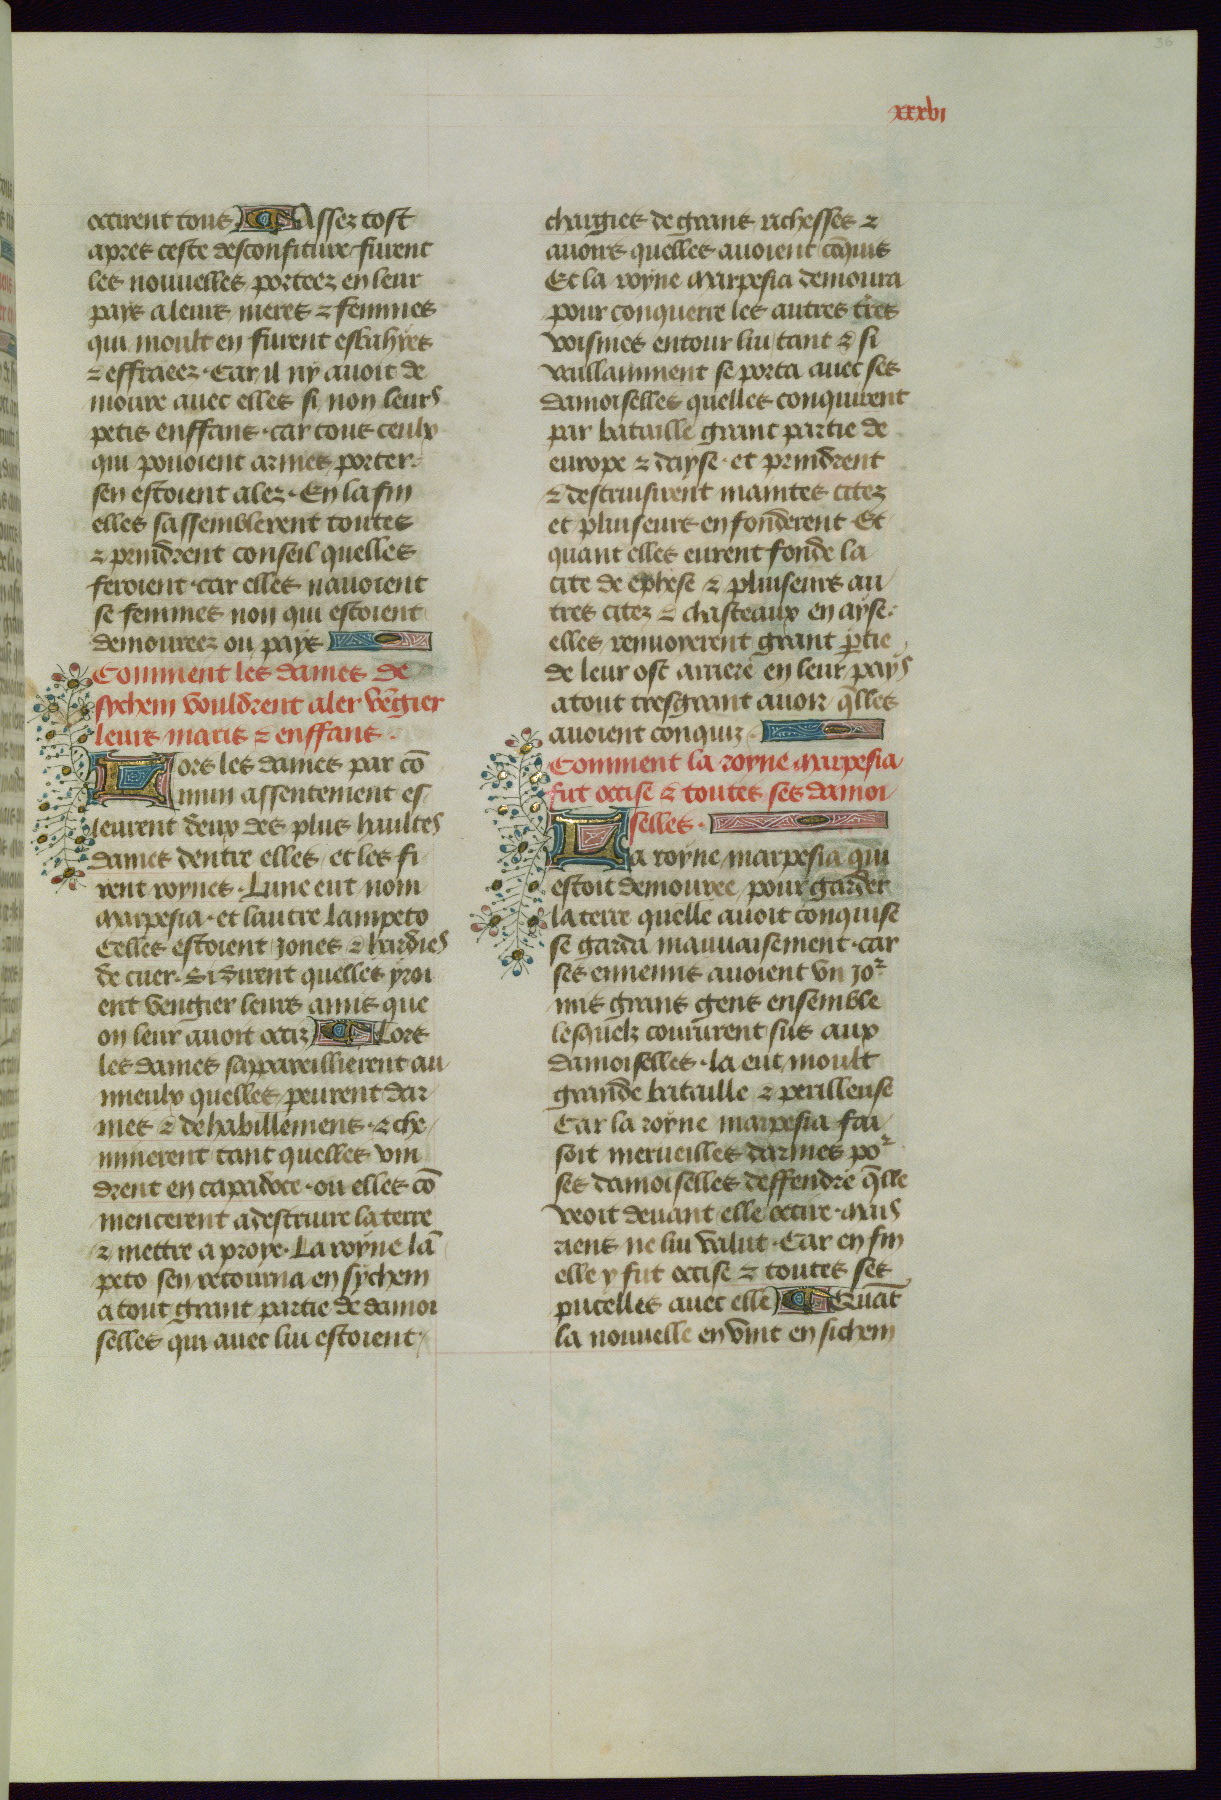 36
xxxvi
occirent tous Assez tost
apres ceste desconfiture furent
les nouvelles porteez en leur
pays a leurs meres ⁊ femmes
qui moult en furent esbahyes
⁊ effraeez. Car il ny avoit de
moure avec elles si non leurs
petis enffans. car tous ceulx
qui povoient armes porter.
sen estoient alez. En la fin
elles sassemblerent toutes
⁊ prindrent conseil quelles
feroient. car elles navoient
se femmes non qui estoient
demoureez ou pays
Comment les dames de
sychem vouldrent aler vēgier
leurs maris ⁊ enffans.
Lors les dames par cō
mun assentement es
leurent deux des plus haultes
dames dentre elles et les fi
rent roynes. Lune eut nom
Marpesia. et lautre Lampeto
Celles estoient jones ⁊ hardies
de cuer. Si dirent quelles yroi
ent vengier leurs amis que
on leur avoit occiz Lors
les dames sappareillierent au
mieulx quelles peurent dar
mes ⁊ dehabillemens. ⁊ che
minerent tant quelles vin
drent en capadoce. ou elles cō
mencerent a destruire la terre
⁊ mettre a proye. La royne lā
peto sen retourna en sychem
a tout grant partie de damoi
selles qui avec lui estoient
chargies de grans richesses ⁊
avoirs quelles avoient cōquis
Et la royne Marpesia demoura
pour conquerre les autres t̄res
voisines entour lui tant ⁊ si
vaillamment se porta avec ses
damoiselles quelles conquirent
par bataille grant partie de
europe ⁊ dayse. et prindrent
⁊ destruisirent maintes citez
et pluiseurs en fonderent Et
quant elles eurent fonde la
cite de ephese ⁊ pluiseurs au
tres citez ⁊ chasteaux en ayse.
elles renvoyerent grant p̄tie
de leur ost arriere en leur pays
a tout tresgrant avoir q̄lles
avoient conquiz.
Comment la royne Marpesia
fut occise ⁊ toutes ses damoi
selles.
La royne marpesia qui
estoit demouree pour garder
la terre quelle avoit conquise
se garda mauvaisement. car
ses ennemis avoient vn jor
mis grans gens ensemble
lesquelz coururent sus aux
damoiselles. la eut moult
grande bataille ⁊ perilleuse
Car la royne marpesia fai
soit merveilles darmes por
ses damoiselles deffendre q̄lle
veoit devant elle occire. Mais
riens ne lui valut. Car en fin
elle y fut occise ⁊ toutes ses
pucelles avec elle Quāt
la nouvelle en vint en sichem